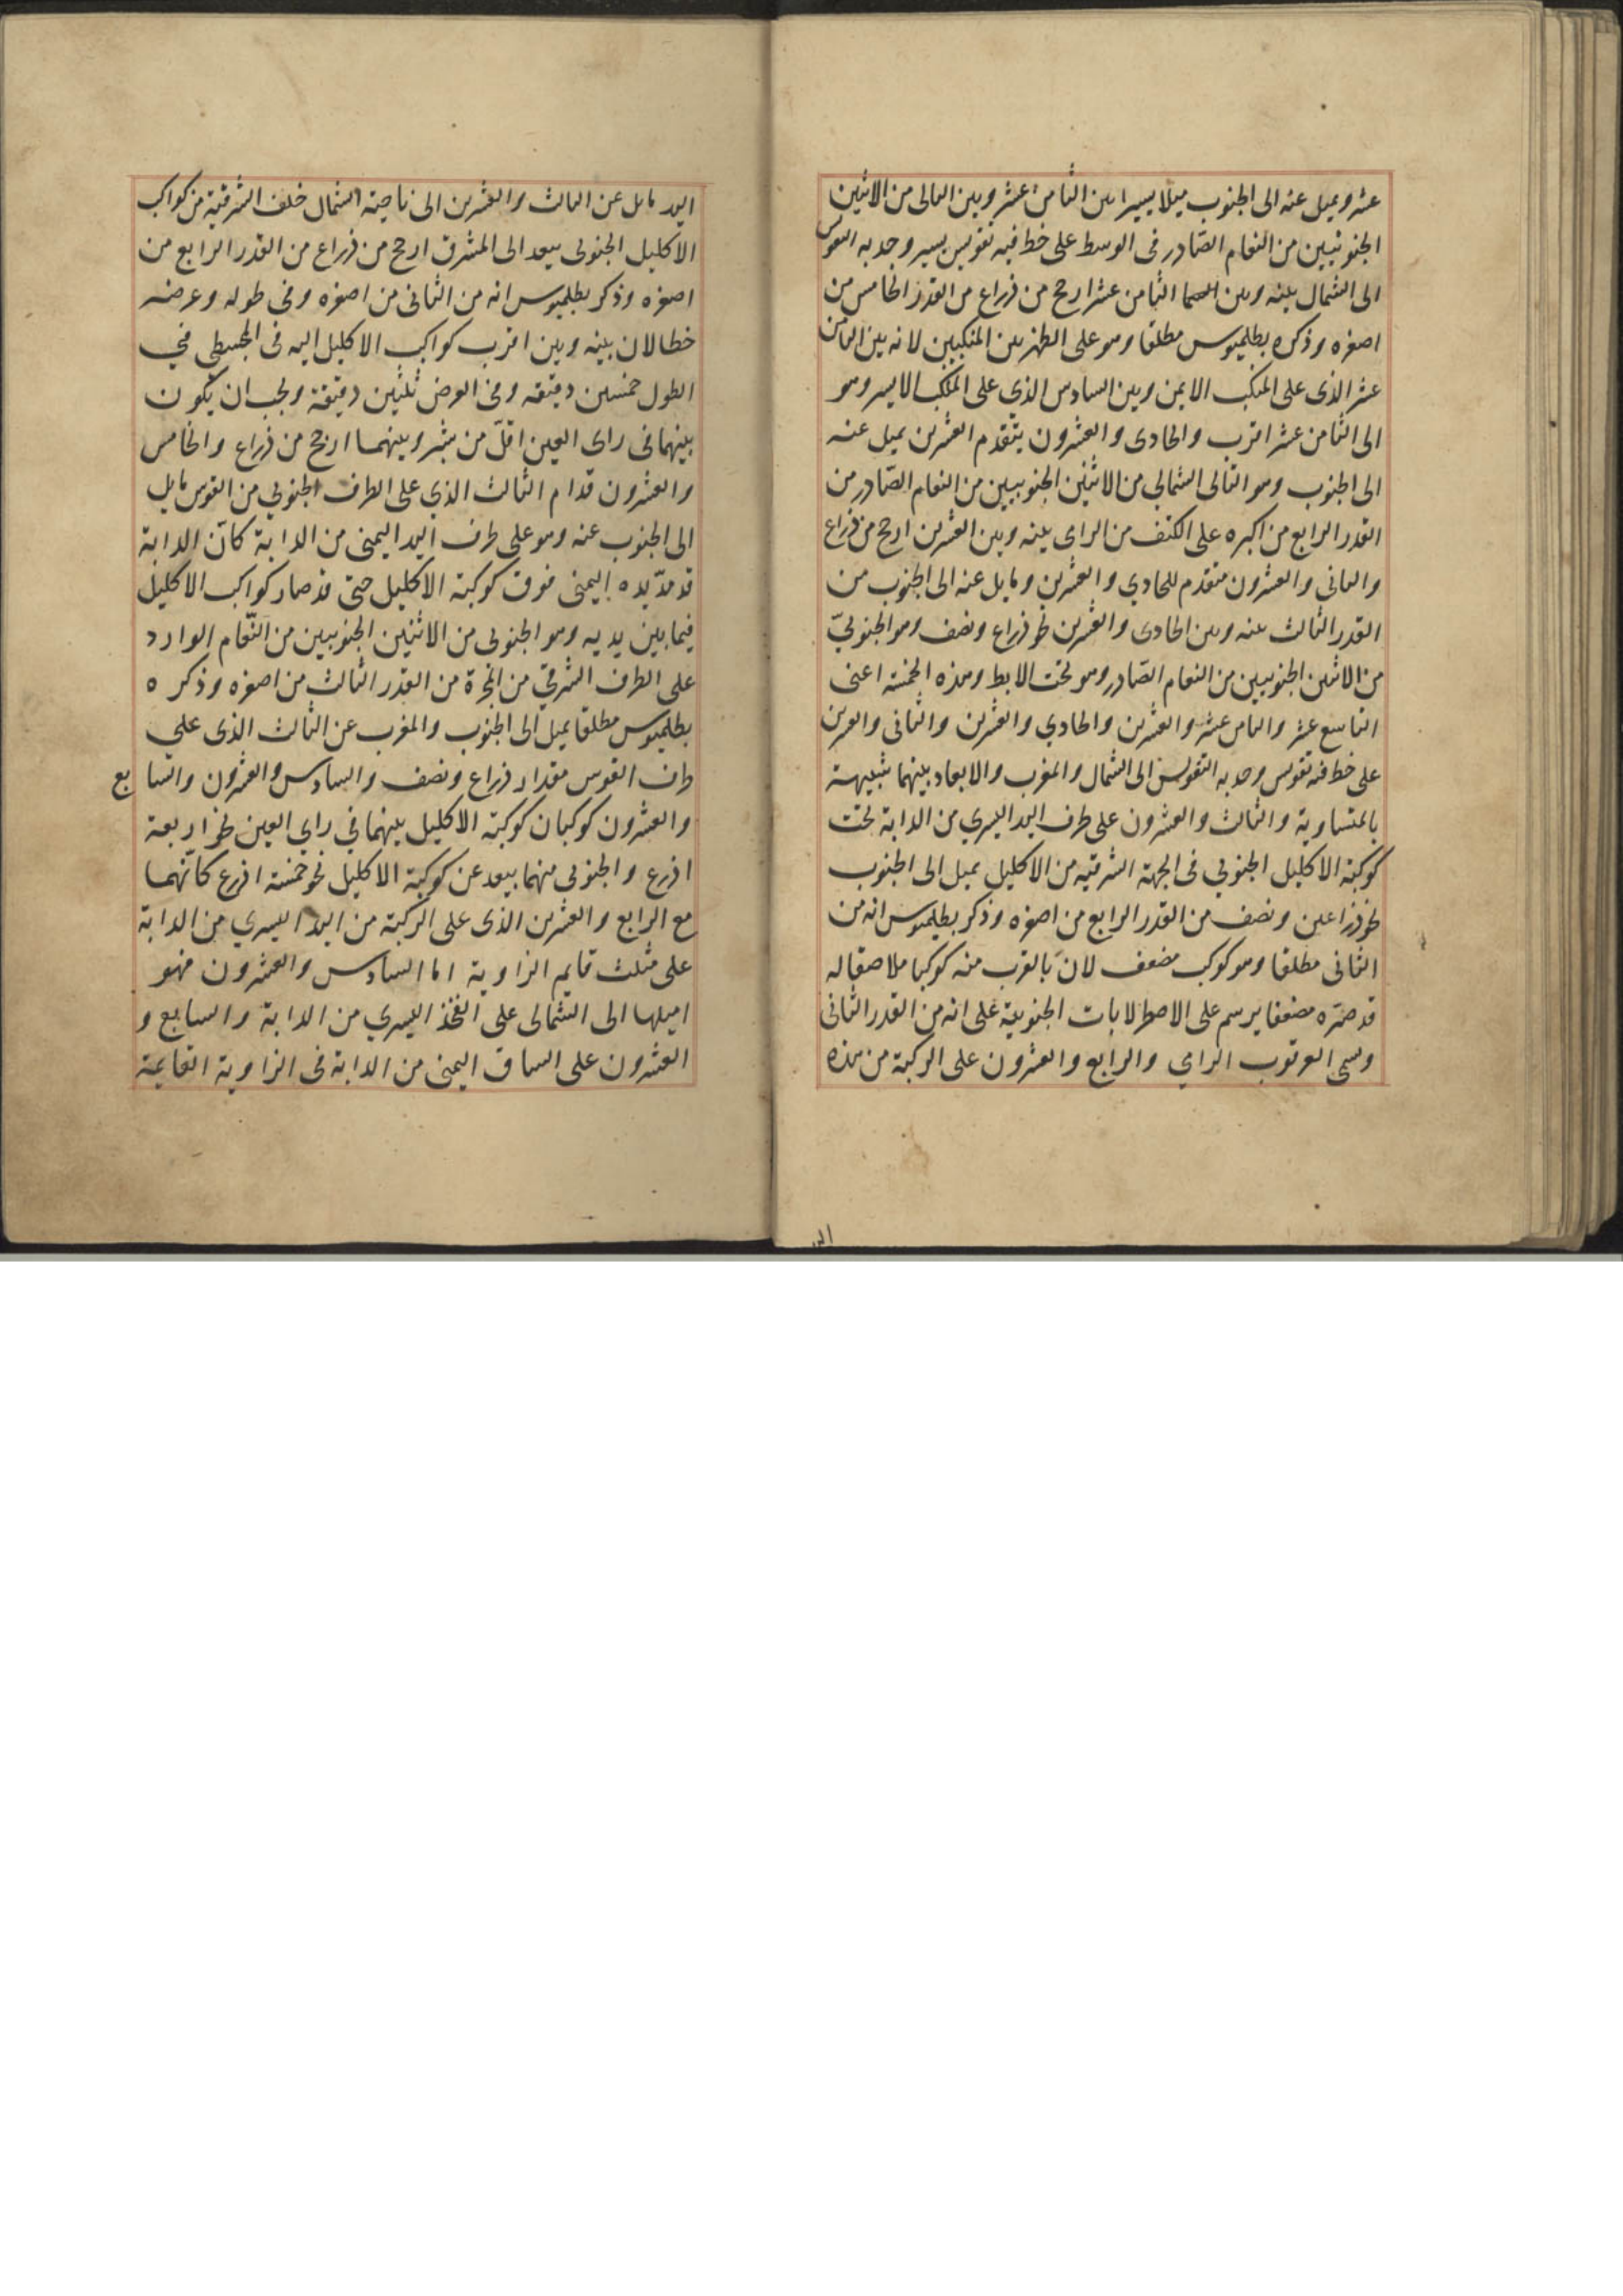 عشر ويميل عنه الى الجنوب ميلا يسيرا بين الثامن عشر وبين التالى من الاثنين
الجنوبيين من النعام الصادر فى الوسط على خط فيه تقويس يسير وحدبه التقويس
الى الشمال بينه وبين الثامن عشر ارجح من ذراع من القدر الخامس من
اصغره وذكره بطلميوس مطلقا وهو على الظهر بين المنكبين لانه بين الثامن
عشر الذى على المنكب الايمن وبين السادس الذى على المنكب الايسر وهو
الى الثامن عشر اقرب والحادى والعشرون يتقدم العشرين يميل عنه
الى الجنوب وهو التالى الشمالي من الاثنين الجنوبيين من النعام الصّادر من
القدر الرابع من اكبره على الكتف من الرامى بينه وبين العشرين ارجح من ذراع
والثانى والعشرون متقدم للحادي والعشرين ومايل عنه الى الجنوب من
القدر الثالث بينه وبين الحادى والعشرين نحو ذراع ونصف وهو الجنوبيّ
من الاثنين الجنوبيين من النعام الصّادر وهو تحت الابط وهذه الخمسة اعنى
التاسع عشر والثامن عشر والعشرين والحادي والعشرين والثانى والعشرين
على خط فيه تقويس وحدبه التقويس الى الشمال والمغرب والابعاد بينهما شبيهة
بالمتساوية والثالث والعشرون على طرف اليد اليسري من الدابة تحت
كوكبة الاكليل الجنوبي فى الجهة الشرقيه من الاكليل يميل الى الجنوب
نحو ذراعين ونصف من القدر الرابع من اصغره وذكر بطلميوس انه من
الثانى مطلقا وهو كوكب مضعف لانّ بالقرب منه كوكبا ملاصقا له
قد صيّره مضعفا يرسم على الاصطرلابات الجنوبية على انه من القدر الثانى
وسمى العرقوب الرامي والرابع والعشرون على الركبة من هذه
اليد
اليد مايل عن الثالث والعشرين الى ناحية الشمال خلف الشرقية من كواكب
الاكليل الجنوبى يبعد الى المشرق ارجح من ذراع من القدر الرابع من
اصغره وذكر بطلميوس انه من الثانى من اصغره وفى طوله وعرضه
خطا لان بينه وبين اقرب كواكب الاكليل اليه فى المجسطى في
الطول خمسين دقيقه وفى العرض ثلثين دقيقة ويجب ان يكون
بينهما فى راى العين اقلّ من شبر وبينهما ارجح من ذراع والخامس
والعشرون قدام الثالث الذي على الطرف الجنوبي من القوس مايل
الى الجنوب عنه وهو على طرف اليد اليمنى من الدابة كانّ الدابة
قد مدّ يده اليمنى فوق كوكبة الاكليل حتى قد صار كواكب الاكليل
فيما بين يديه وهو الجنوبى من الاثنين الجنوبيين من النّعام الوارد
على الطرف الشرقي من المجرة من القدر الثالث من اصغره وذكره
بطلميوس مطلقا يميل الى الجنوب والمغرب عن الثالث الذى علي
طرف القوس مقدار ذراع ونصف والسادس والعشرون والسابع
والعشرون كوكبان كوكبة الاكليل بينهما في راي العين نحو اربعة
اذرع والجنوبى منهما يبعد عن كوكبة الاكليل نحو خمسة اذرع كانّهما
مع الرابع والعشرين الذى على الركبة من اليد اليسري من الدابة
على مثلث قايم الزاوية اما السادس والعشرون فهو
اميلها الى الشمالى على الفخذ اليسري من الدابة والسابع و
العشرون على الساق اليمنى من الدابة فى الزاوية القايمة